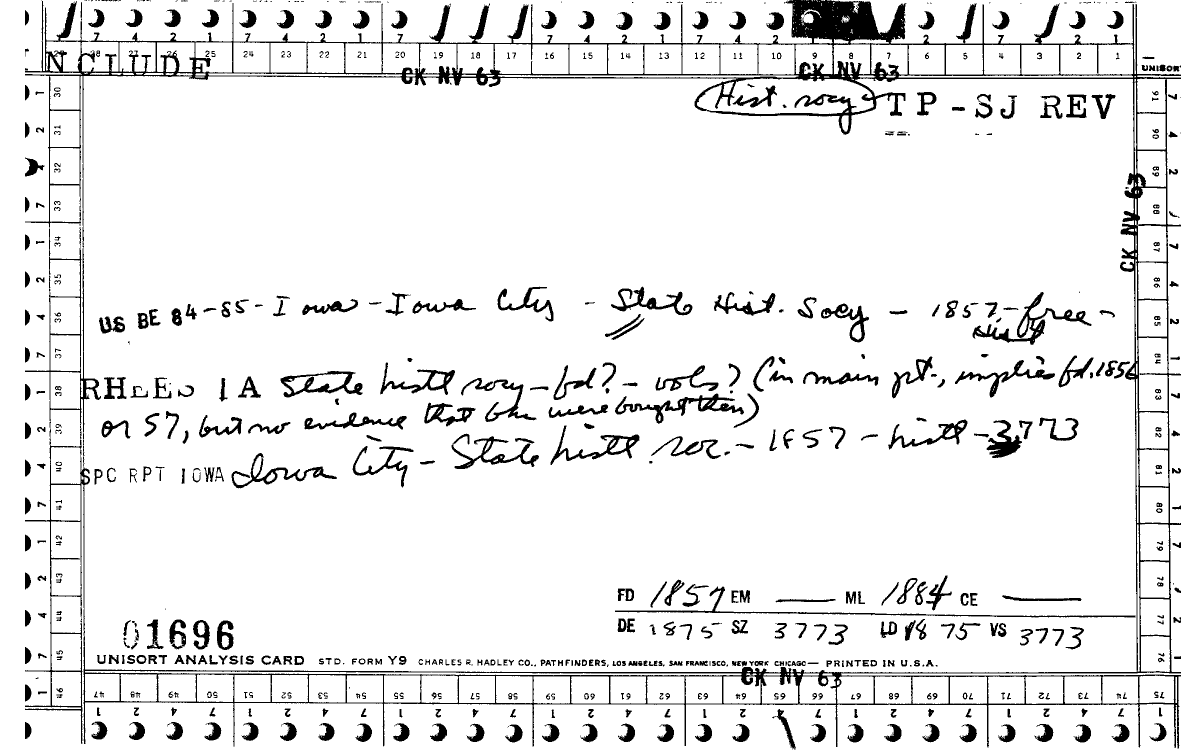 7 4 2 1 7 4 2 1 7 4 2 1 7 4 2 1 7 2 1 7 4 2 1
28 27 26 25 24 23 22 21 20 19 18 17 16 15 14 13 12 11 10 9 8 7 6 5 4 3 2 1
INCLUDE
CK NV 63 CK NV 63
UNISORT
Hist. socy TP-SJ REV
CK NV 63
US BE 84-85-Iowa-Iowa City - State Hist. Socy - 1857-free-
Hist
RHEES IA State histl socy-fd?-vols? (in main pt., implies fd. 1856
or 57, but no evidence that were bought then)
SPC RPT IOWA Iowa City-State histl soc.-1857-histl-3,773
FD 1857 EM — ML 1884 CE —
DE 1875 SZ 3773 LD 1875 VS 3773
01696
UNISORT ANALYSIS CARD STD. FORM Y9 CHARLES R. HADLEY CO., PATHFINDERS, LOS ANGELES, SAN FRANCISCO, NEW YORK CHICAGO — PRINTED IN U.S.A.
CK NV 63
47 48 49 50 51 52 53 54 55 56 57 58 59 60 61 62 63 64 65 66 67 68 69 70 71 72 73 74 75